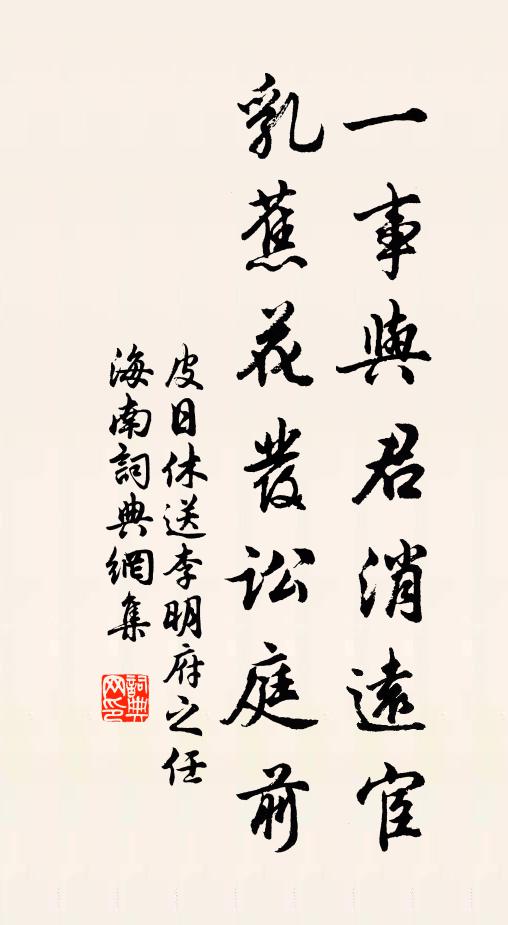 一事與君消遠宦
乳蕉花發訟庭前
皮日休送李明府之任
海南詞典網集
詞典
网印